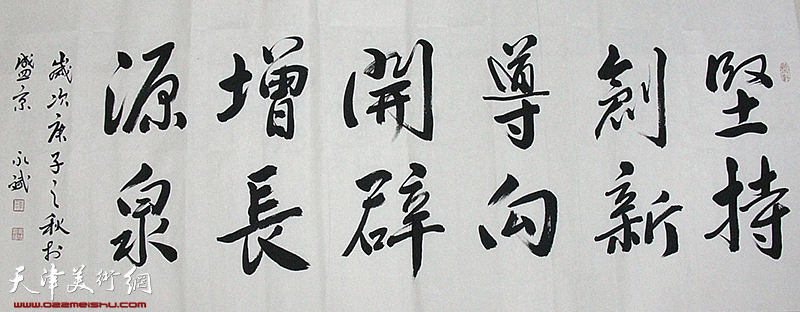 堅持
創新
導向
開辟
增長
源泉
歲次庚子之秋於
盛京 永斌
天津美術網
www.022meishu.com